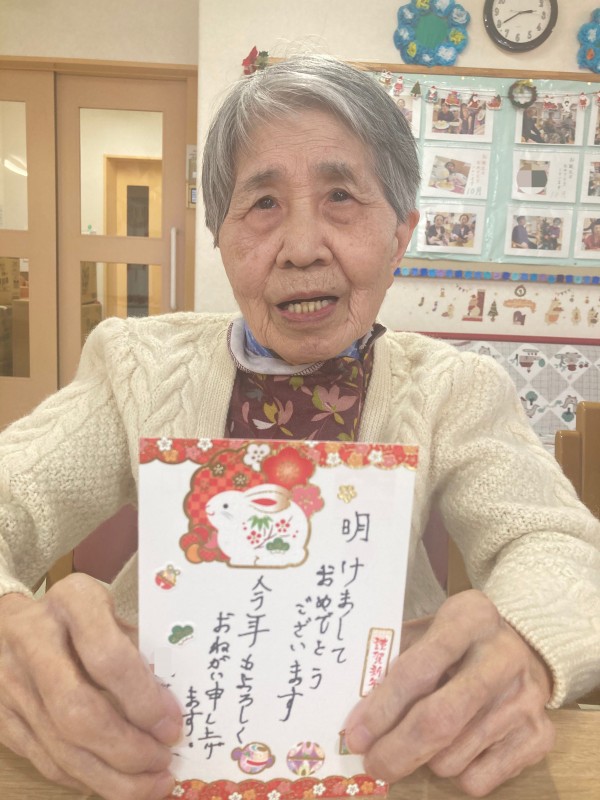 明けまして
おめでとう
ございます
今年もよろしく
おねがい申し上げ
ます。
謹賀新年